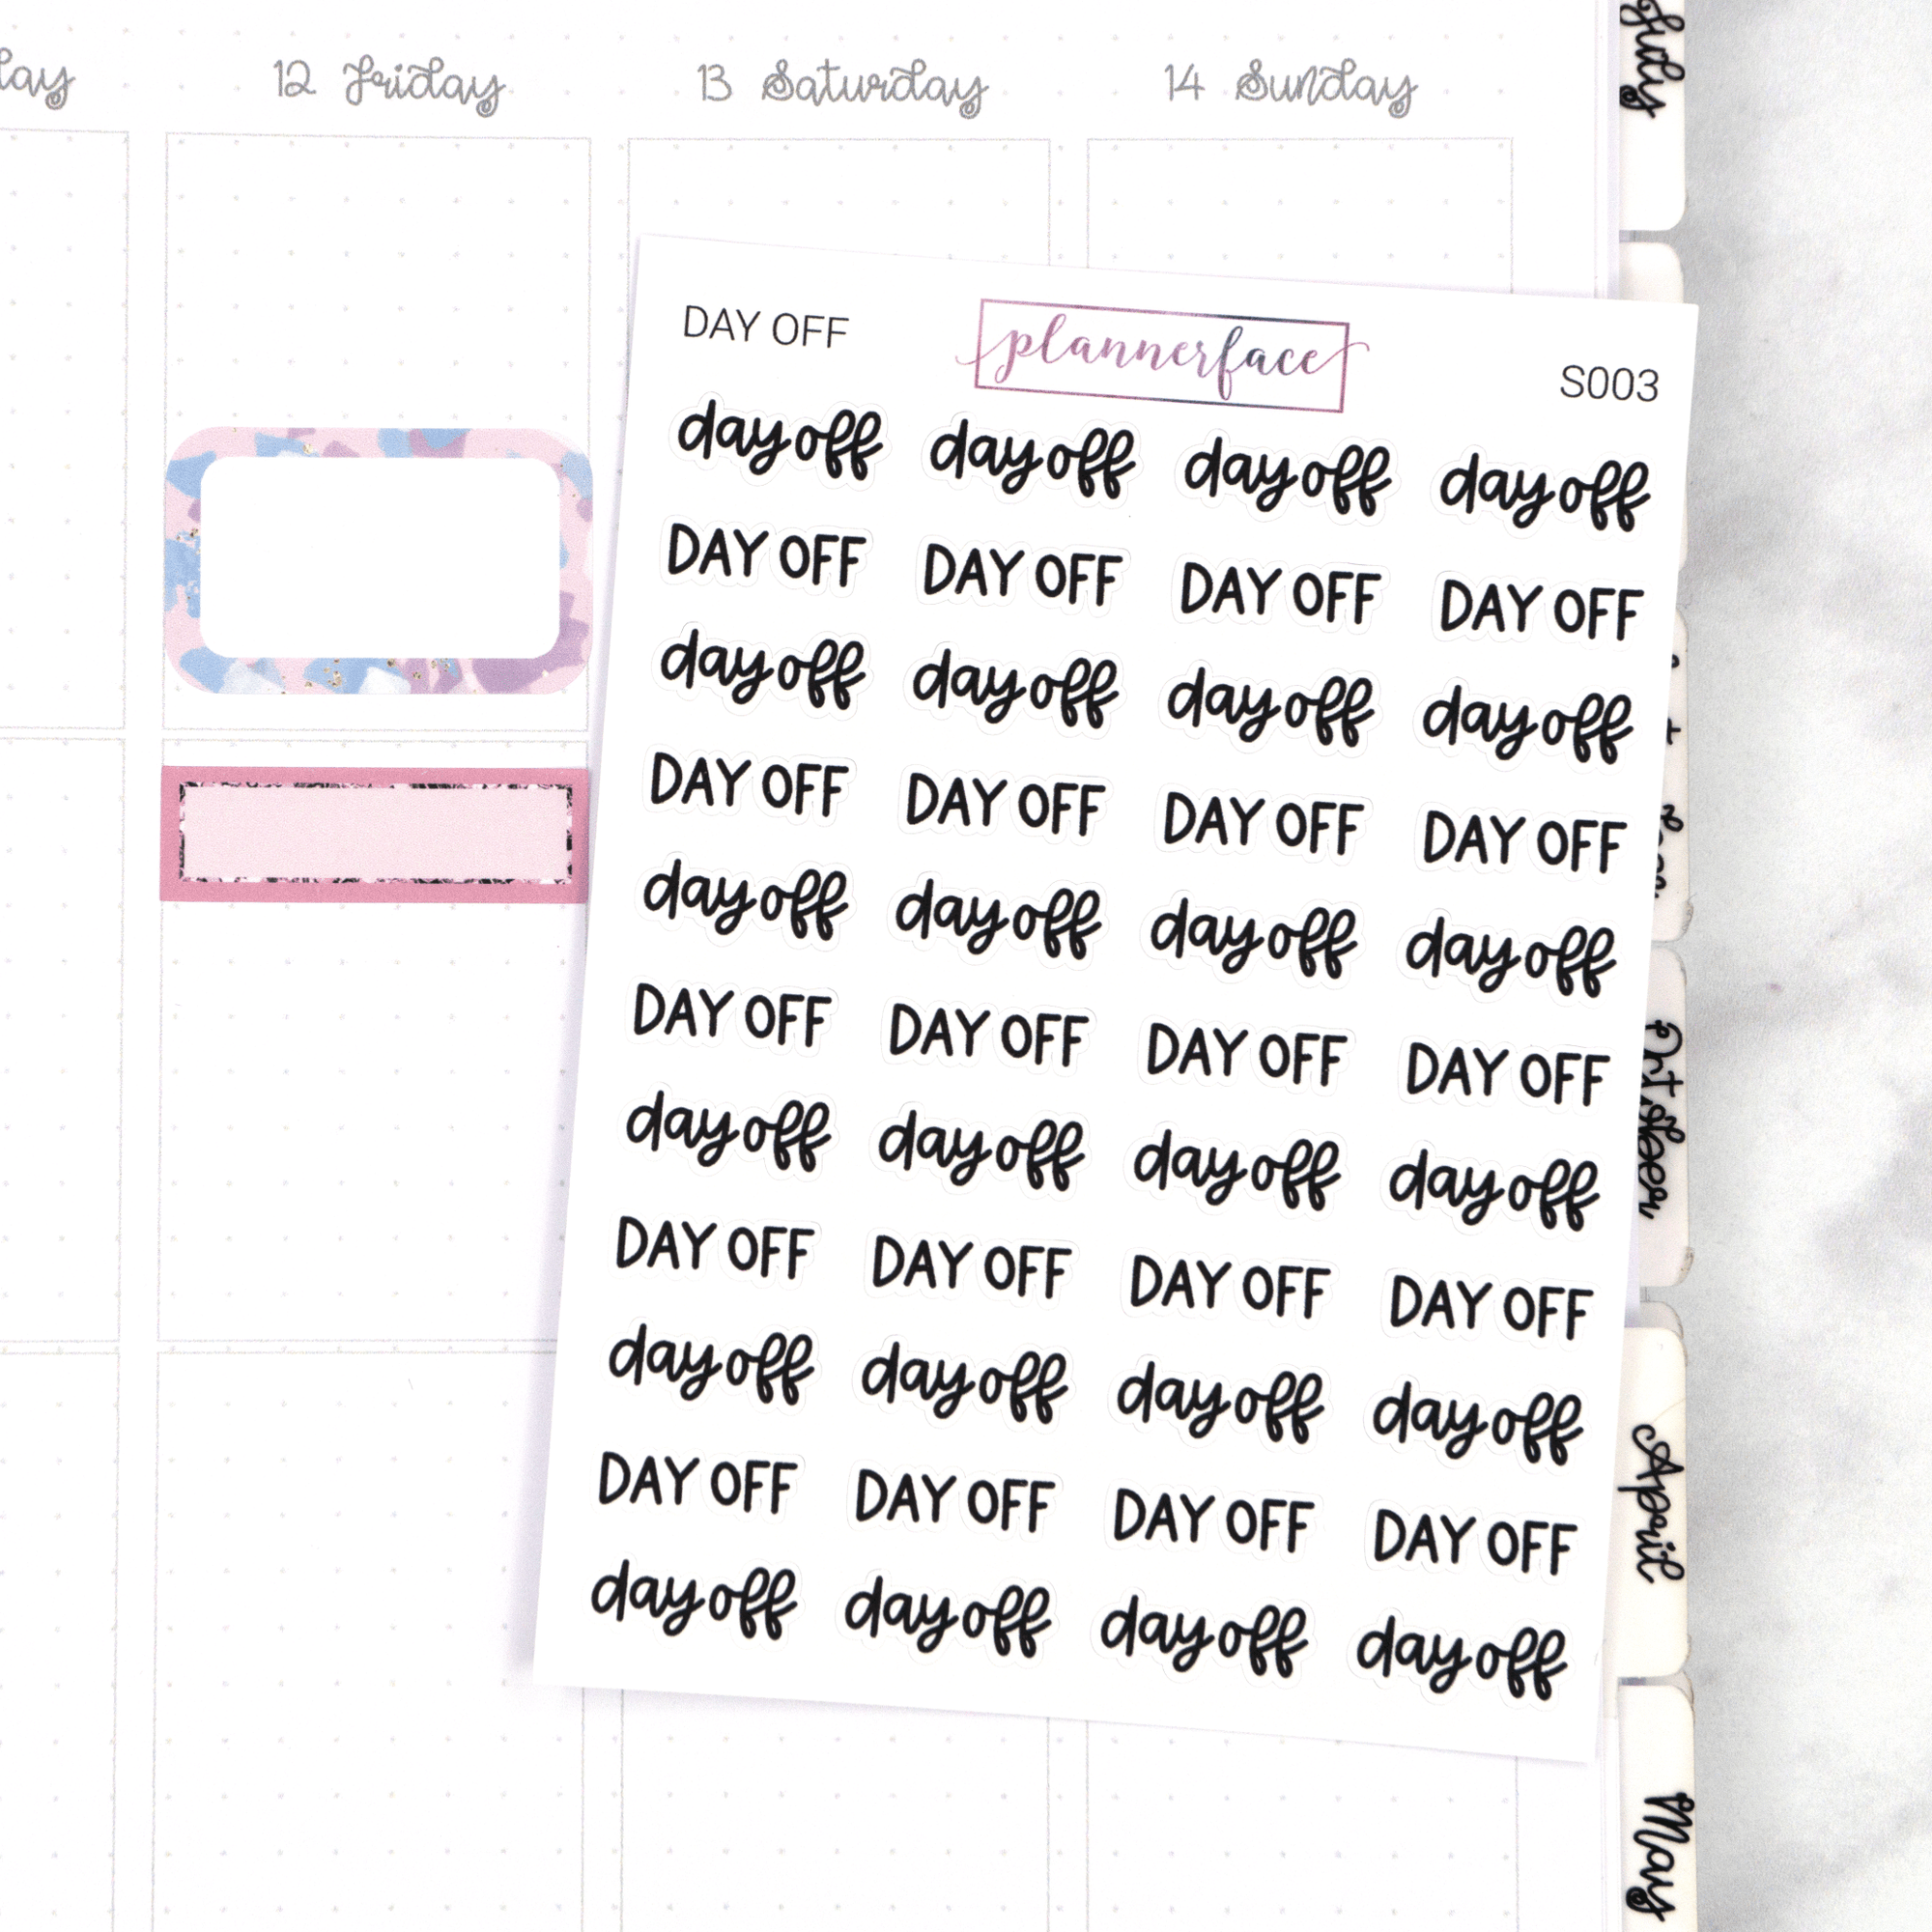 12 Friday 13 Saturday 14 Sunday
July
DAY OFF plannerface S003
day off day off day off day off
DAY OFF DAY OFF DAY OFF DAY OFF
day off day off day off day off
DAY OFF DAY OFF DAY OFF DAY OFF
day off day off day off day off
DAY OFF DAY OFF DAY OFF DAY OFF
day off day off day off day off
DAY OFF DAY OFF DAY OFF DAY OFF
day off day off day off day off
DAY OFF DAY OFF DAY OFF DAY OFF
day off day off day off day off
April
May